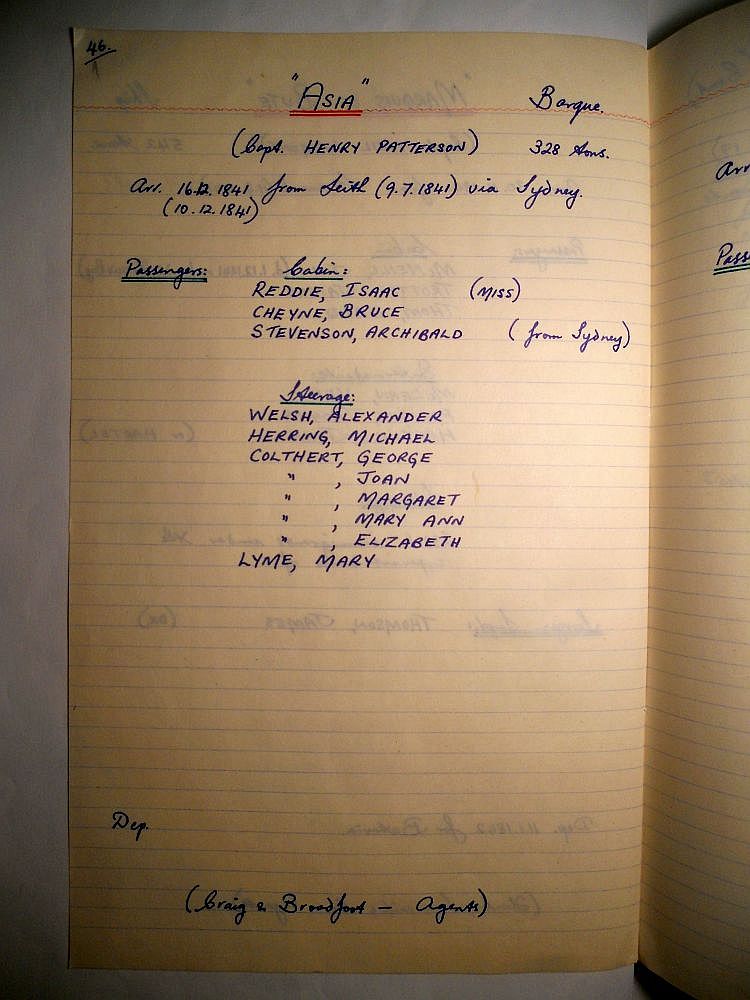 46.
"ASIA" Barque.
(Capt. HENRY PATTERSON) 328 tons.
Arr. 16.12.1841 from Leith (9.7.1841) via Sydney.
(10.12.1841)
Passengers: Cabin:
REDDIE, ISAAC (MISS)
CHEYNE, BRUCE
STEVENSON, ARCHIBALD (from Sydney)
Steerage:
WELSH, ALEXANDER
HERRING, MICHAEL
COLTHERT, GEORGE
" , JOAN
" , MARGARET
" , MARY ANN
" , ELIZABETH
LYME, MARY
Dep.
(Craig & Broadfoot — Agents)
Arr
Pass